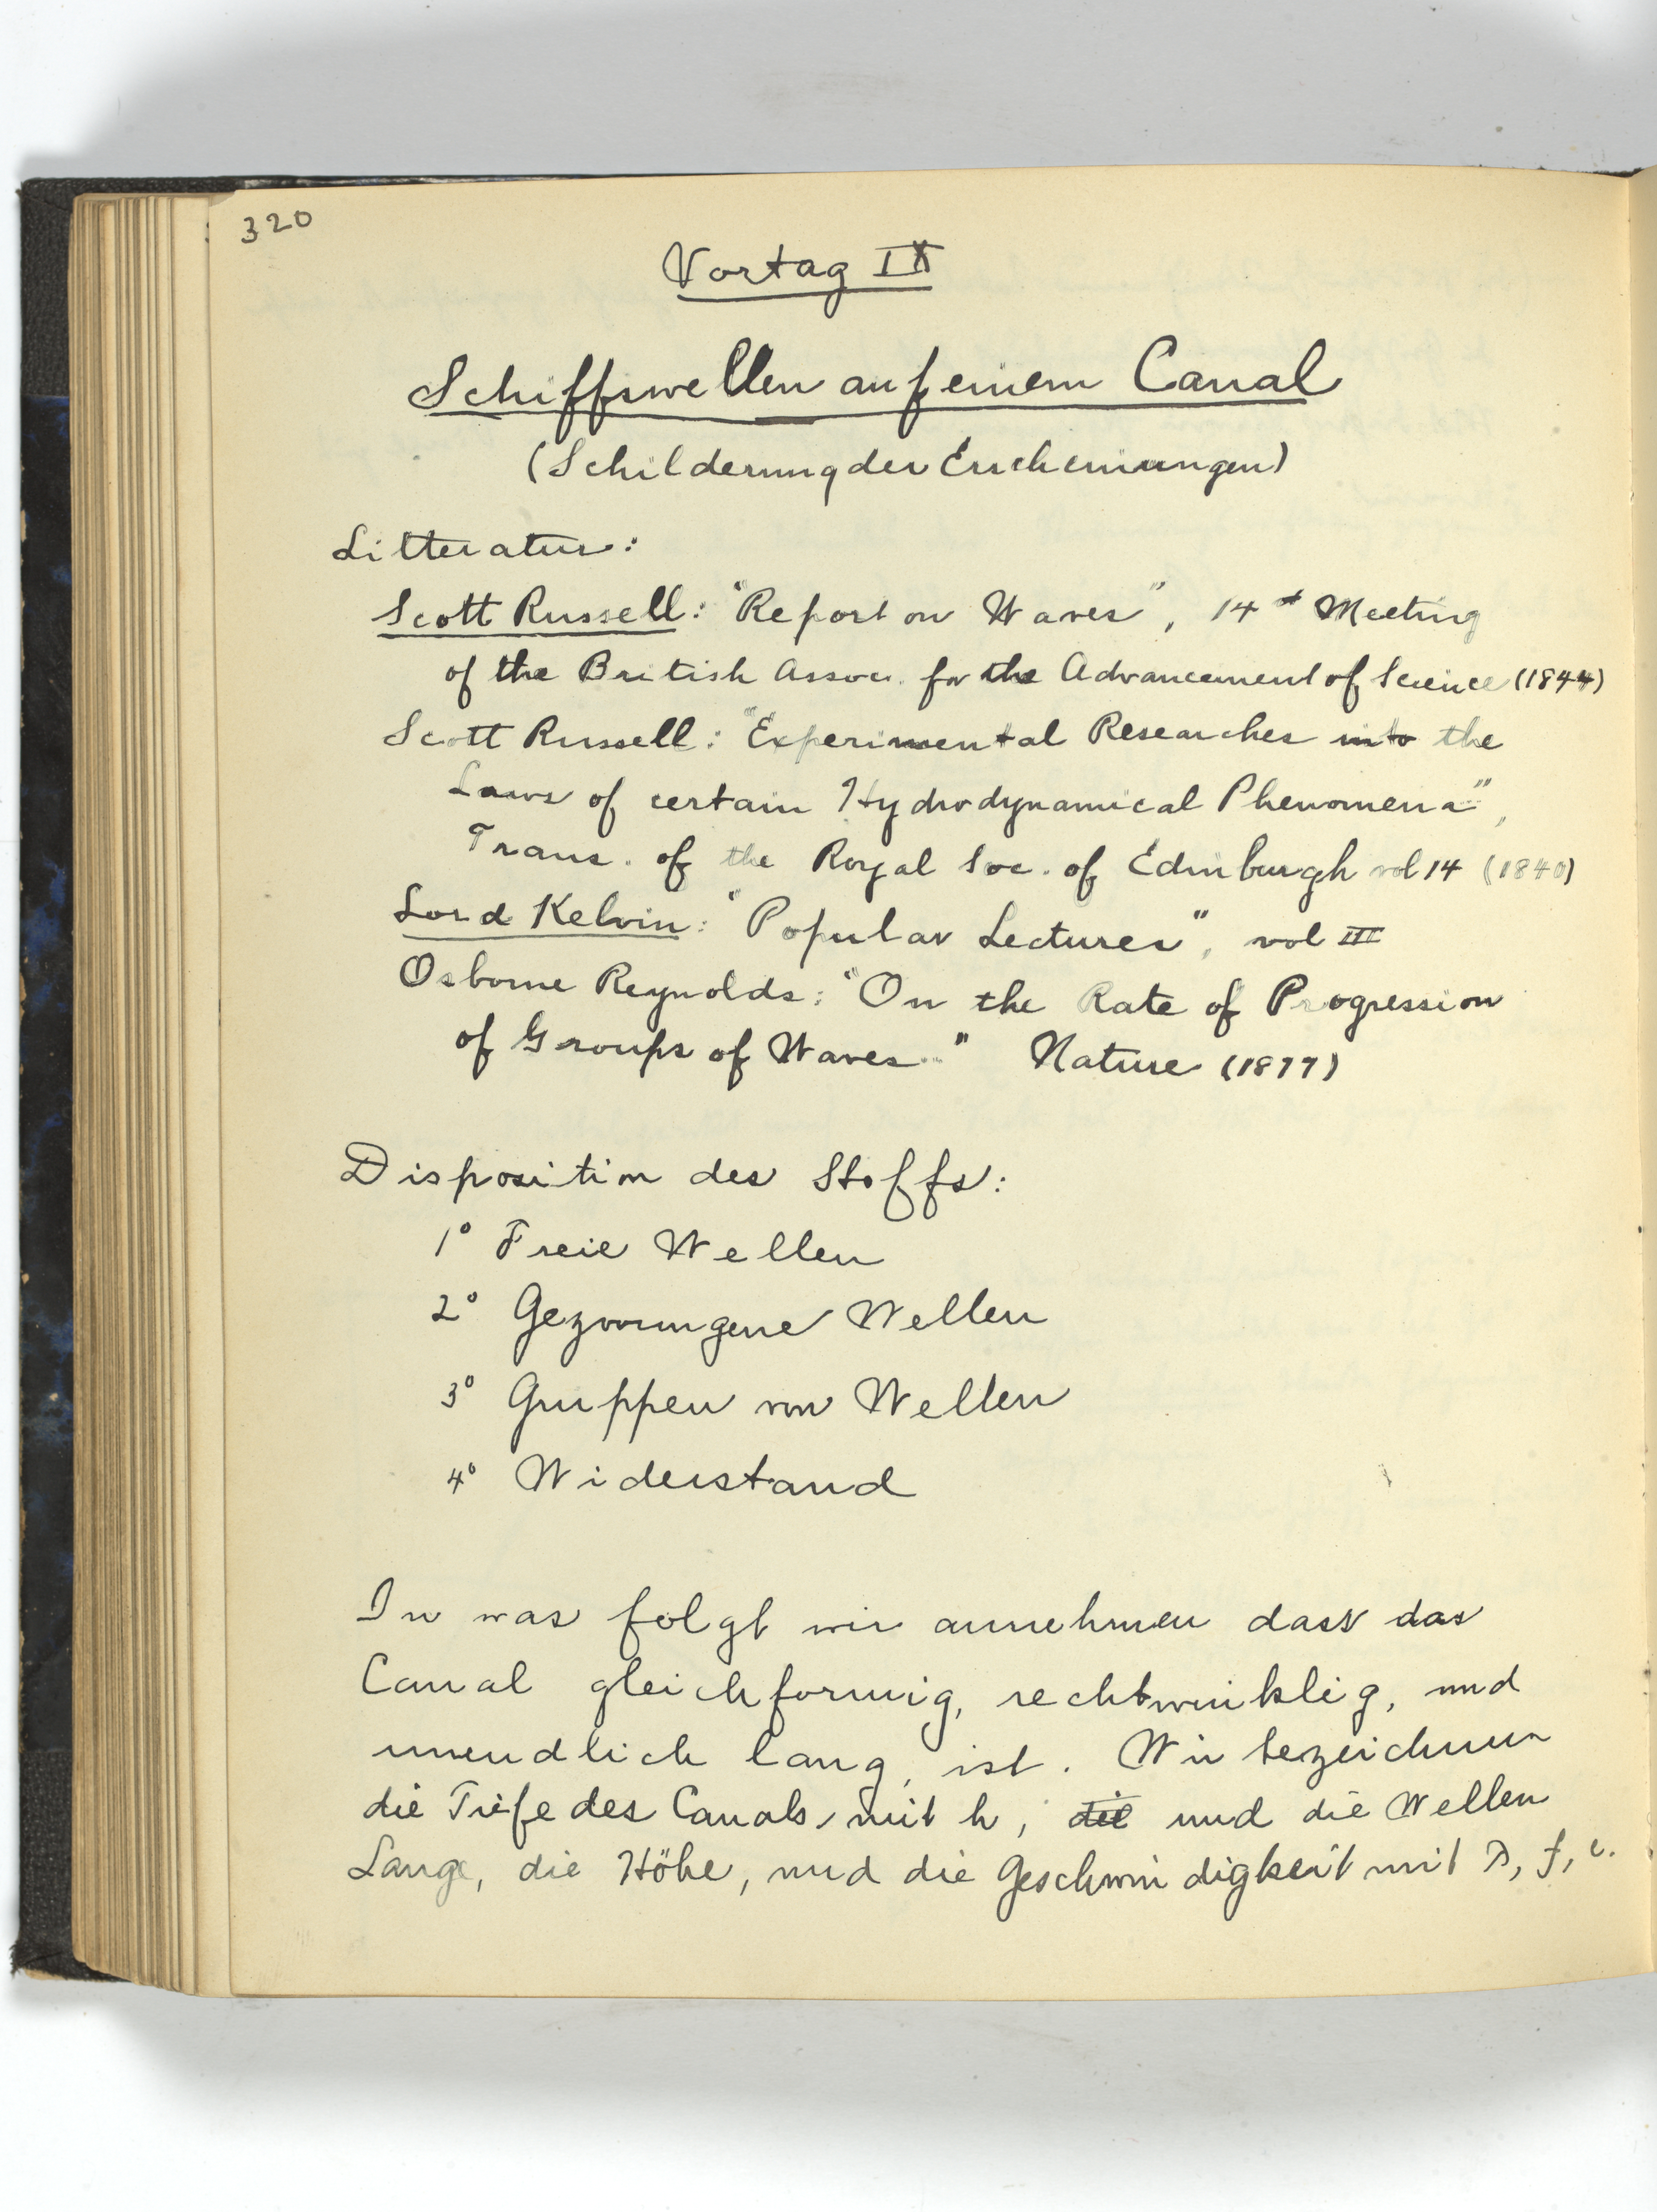 320
Vortag IX
Schiffswellen auf einem Canal
(Schilderung der Erscheinungen)
Litteratur:
Scott Russell: "Report on Waves", 14th Meeting
of the British Assoc. for the Advancement of Science (1844)
Scott Russell: "Experimental Researches into the
Laws of certain Hydrodynamical Phenomena",
Trans. of the Royal Soc. of Edinburgh vol 14 (1840)
Lord Kelvin: "Popular Lectures", vol III
Osborne Reynolds: "On the Rate of Progression
of Groups of Waves" Nature (1877)
Disposition des Stoffs:
1° Freie Wellen
2° Gezwungene Wellen
3° Gruppen von Wellen
4° Widerstand
In was folgt wir annehmen dass das
Canal gleichformig, rechtwinklig, und
unendlich lang, ist. Wir bezeichnen
die Tiefe des Canals, mit h, die und die Wellen
Lange, die Höhe, und die Geschwindigkeit mit λ, f, c.